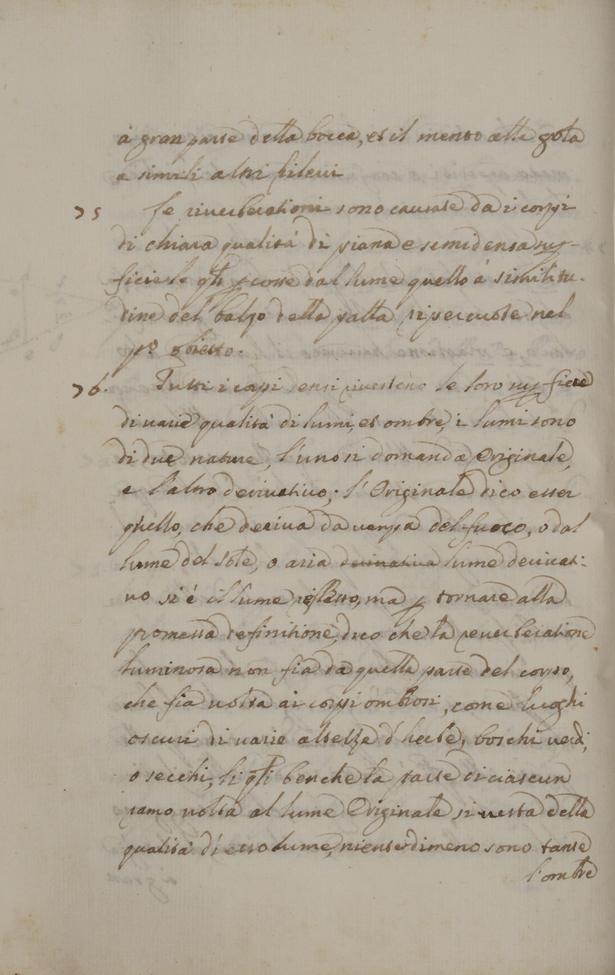 à gran parte della bocca, et il mento alla gola
e simili altri rilevi
75 Le riverberationi sono causate da i corpi
di chiara qualità di piana e semidensa sup-
ficie le qli pcosse dal lume quello à similitu-
dine del balzo della palla ripercuote nel
po obietto.
76. Tutti i corpi densi vivesteno le loro supficie
di varie qualità di lumi, et ombre, i lumi sono
di due nature, l'uno si domanda Originale,
e l'altro derivativo; l'Originale dico esser
quello, che deriva da vampa del fuoco, o dal
lume del sole, o aria derivativa lume derivati:
vo si é il lume reflesso, ma p tornare alla
promessa definitione, dico che la reverberatione
luminosa non fia da quella parte del corpo,
che fia volta ai corpi ombrosi, come luoghi
oscuri di varie altezze d'herbe, boschi verdi,
o secchi, li qli benche la parte di ciascun
ramo volta al lume Originale si vesta della
qualità di esso lume, nientedimeno sono tante
l'ombre